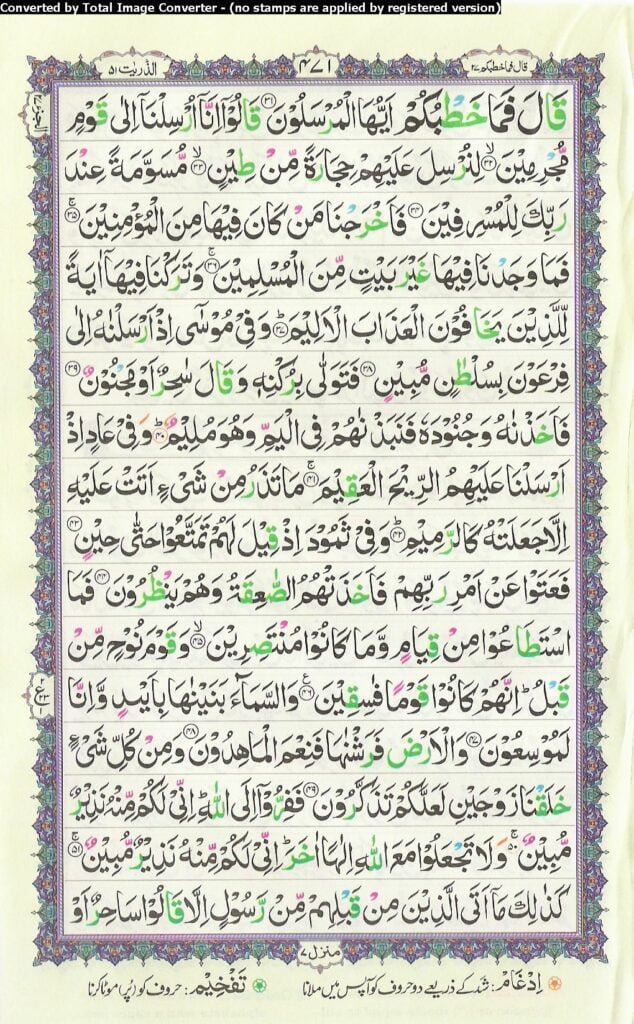 Converted by Total Image Converter - (no stamps are applied by registered version)
قال فما خطبکم ۲۷
۴۷۱
الذّٰریٰت ۵۱
قَالَ فَمَا خَطْبُكُمْ اَيُّهَا الْمُرْسَلُوْنَ ﴿۳۱﴾ قَالُوْۤا اِنَّاۤ اُرْسِلْنَاۤ اِلٰى قَوْمٍ
مُّجْرِمِيْنَ ﴿۳۲﴾ لِنُرْسِلَ عَلَيْهِمْ حِجَارَةً مِّنْ طِيْنٍ ﴿۳۳﴾ مُّسَوَّمَةً عِنْدَ
رَبِّكَ لِلْمُسْرِفِيْنَ ﴿۳۴﴾ فَاَخْرَجْنَا مَنْ كَانَ فِيْهَا مِنَ الْمُؤْمِنِيْنَ ﴿۳۵﴾
فَمَا وَجَدْنَا فِيْهَا غَيْرَ بَيْتٍ مِّنَ الْمُسْلِمِيْنَ ﴿۳۶﴾ وَتَرَكْنَا فِيْهَاۤ اٰيَةً
لِّلَّذِيْنَ يَخَافُوْنَ الْعَذَابَ الْاَلِيْمَ ﴿۳۷﴾ وَفِيْ مُوْسٰۤى اِذْ اَرْسَلْنٰهُ اِلٰى
فِرْعَوْنَ بِسُلْطٰنٍ مُّبِيْنٍ ﴿۳۸﴾ فَتَوَلّٰى بِرُكْنِهٖ وَقَالَ سٰحِرٌ اَوْ مَجْنُوْنٌ ﴿۳۹﴾
فَاَخَذْنٰهُ وَجُنُوْدَهٗ فَنَبَذْنٰهُمْ فِي الْيَمِّ وَهُوَ مُلِيْمٌ ﴿۴۰﴾ وَفِيْ عَادٍ اِذْ
اَرْسَلْنَا عَلَيْهِمُ الرِّيْحَ الْعَقِيْمَ ﴿۴۱﴾ مَا تَذَرُ مِنْ شَيْءٍ اَتَتْ عَلَيْهِ
اِلَّا جَعَلَتْهُ كَالرَّمِيْمِ ﴿۴۲﴾ وَفِيْ ثَمُوْدَ اِذْ قِيْلَ لَهُمْ تَمَتَّعُوْا حَتّٰى حِيْنٍ ﴿۴۳﴾
فَعَتَوْا عَنْ اَمْرِ رَبِّهِمْ فَاَخَذَتْهُمُ الصّٰعِقَةُ وَهُمْ يَنْظُرُوْنَ ﴿۴۴﴾ فَمَا
اسْتَطَاعُوْا مِنْ قِيَامٍ وَّمَا كَانُوْا مُنْتَصِرِيْنَ ﴿۴۵﴾ وَقَوْمَ نُوْحٍ مِّنْ
قَبْلُ ؕ اِنَّهُمْ كَانُوْا قَوْمًا فٰسِقِيْنَ ﴿۴۶﴾ وَالسَّمَآءَ بَنَيْنٰهَا بِاَيْىدٍ وَّاِنَّا
لَمُوْسِعُوْنَ ﴿۴۷﴾ وَالْاَرْضَ فَرَشْنٰهَا فَنِعْمَ الْمٰهِدُوْنَ ﴿۴۸﴾ وَمِنْ كُلِّ شَيْءٍ
خَلَقْنَا زَوْجَيْنِ لَعَلَّكُمْ تَذَكَّرُوْنَ ﴿۴۹﴾ فَفِرُّوْۤا اِلَى اللّٰهِ ؕ اِنِّيْ لَكُمْ مِّنْهُ نَذِيْرٌ
مُّبِيْنٌ ﴿۵۰﴾ وَلَا تَجْعَلُوْا مَعَ اللّٰهِ اِلٰهًا اٰخَرَ ؕ اِنِّيْ لَكُمْ مِّنْهُ نَذِيْرٌ مُّبِيْنٌ ﴿۵۱﴾
كَذٰلِكَ مَاۤ اَتَى الَّذِيْنَ مِنْ قَبْلِهِمْ مِّنْ رَّسُوْلٍ اِلَّا قَالُوْا سَاحِرٌ اَوْ
منزل ۷
اِدْغَام : شَد کے ذریعے دو حروف کو آپس میں ملانا
تَفْخِیْم : حروف کو (پُر) موٹا کرنا